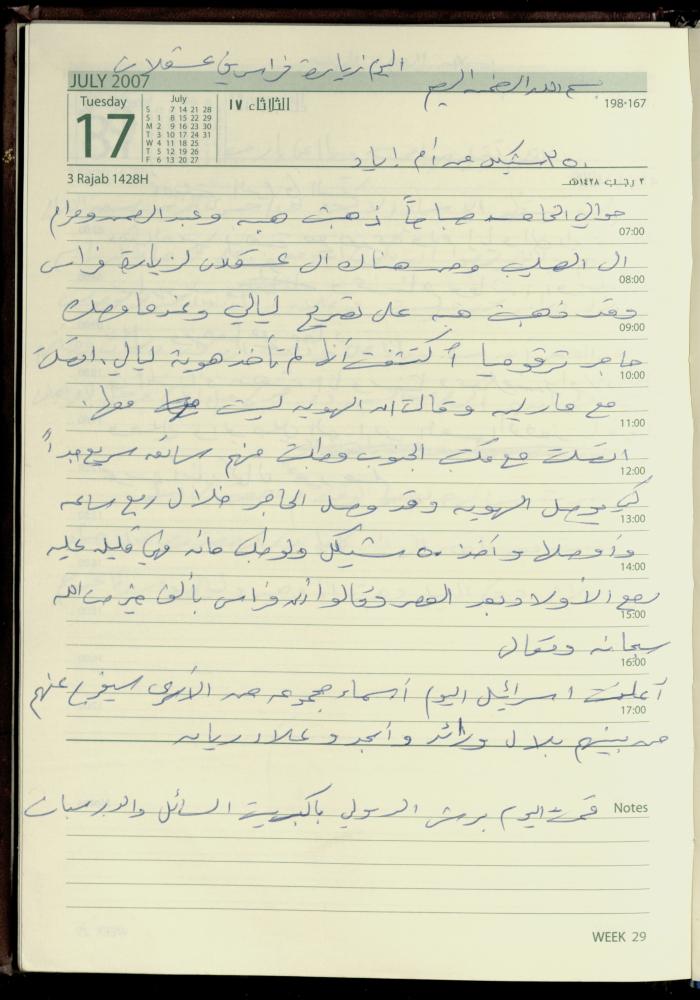 اليوم زيارة فراس في عسقلان
بسم الله الرحمن الرحيم
JULY 2007
198-167
Tuesday
17
July
S 7 14 21 28
S 1 8 15 22 29
M 2 9 16 23 30
T 3 10 17 24 31
W 4 11 18 25
T 5 12 19 26
F 6 13 20 27
الثلاثاء ١٧
٢٥٠ شيكل من أم إياد
3 Rajab 1428H
٣ رجب ١٤٢٨هـ
حوالي الخامسة صباحاً ذهبت هبه وعبد الرحمن ومرام
07:00
الى الصليب ومن هناك الى عسقلان لزيارة فراس
08:00
وقد ذهبت هبه على تصريح ليالي وعندما وصلت
09:00
حاجز ترقوميا أكتشفت أنها لم تأخذ هوية ليالي، اتصلت
10:00
مع مارليه وقالت ان الهويه ليست معها.
11:00
اتصلت مع مكتب الجنوب وطلبت منهم سائق سريع جداً
12:00
كي يوصل الهويه وقد وصل الحاجز خلال ربع ساعه
13:00
وأوصلها وأخذ ٥٠ شيكل ولو طلب مائه فهي قليله عليه
14:00
رجع الأولاد بعد العصر وقالوا أن فراس بألف خير من الله
15:00
سبحانه وتعالى
16:00
أعلنت اسرائيل اليوم أسماء مجموعه من الأسرى سيفرج عنهم
17:00
من بينهم بلال ورائد وأمجد وعلاء ريان
Notes
قمت اليوم برش الدوالي باكبريت السائل والدرسبان
WEEK 29